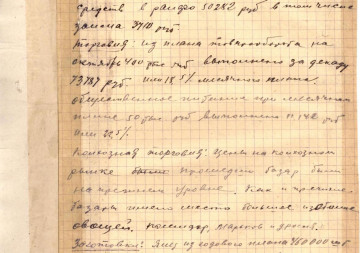 средств в райфо 50282 руб в том числе
займа 3710 руб
Торговля: из плана товарооборота на
октябрь 400 тыс руб выполнено за декаду
73787 руб или 18,5% месячного плана.
общественное питание при месячном
плане 50 тыс руб выполнено 11.142 руб
или 22,5%
Колхозная торговля: Цены на колхозном
рынке прошедший базар были
на прежнем уровне. Как и прежние
базары имело место большое изобилие
овощей, помидор, и дынь.
Заготовки: Яиц из годового плана 460000 шт